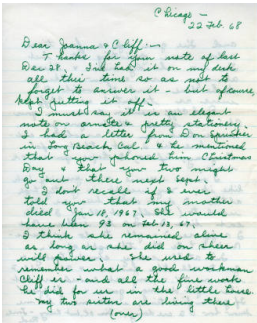 Chicago -
22 Feb. 68
Dear Joanna & Cliff -
Thanks for your note of last
Dec 28. I've had it on my desk
all this time so as not to
forget to answer it - but of course,
kept putting it off.
I must say it was an elegant
note on pretty stationery.
I had a letter from Don
in Long Beach, Cal. & he mentioned
that you phoned him Christmas
Day & that you two might
go out there next Sept.
I don't recall if I ever
told you that my mother
died Jan 18, 1967. She would
have been 93 on Feb 13, 67.
I think she remained alive
as long as she did on sheer
will power. She used to
remember what a good workman
Cliff is - and all the fine work
he did for us in the little house.
My two sisters are living there
(over)